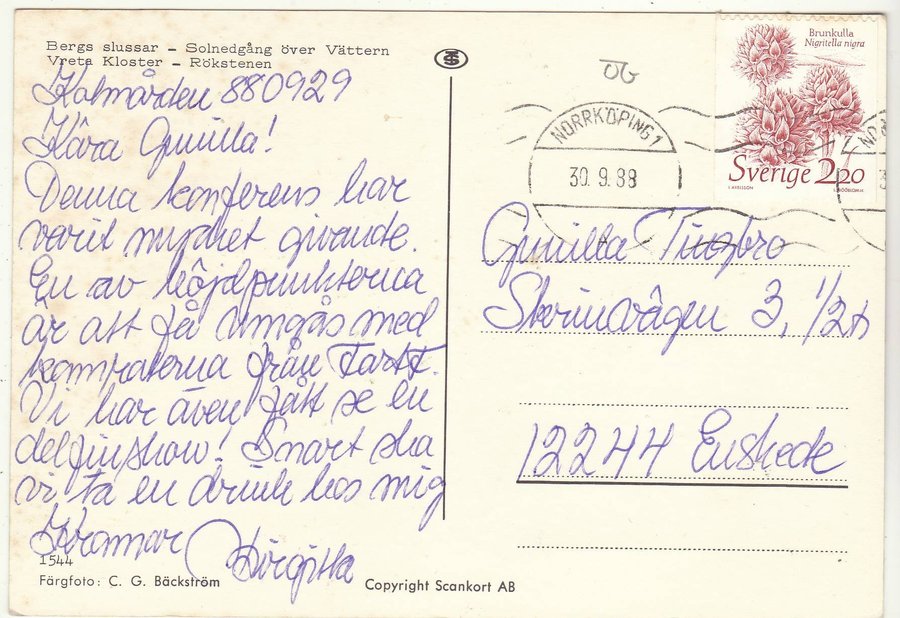 Bergs slussar – Solnedgång över Vättern
Vreta Kloster – Rökstenen
Kolmården 880929
Kära Gunilla!
Denna konferens har
varit mycket givande.
En av höjdpunkterna
är att få umgås med
kompisarna från
Vi har även fått se en
delfinshow! Snart ska
vi ta en drink hos mig
Kramar Birgitta
1544
Färgfoto: C. G. Bäckström
Copyright Scankort AB
NORRKÖPING 1
30.9.88
Brunkulla
Nigritella nigra
Sverige 2,20
Gunilla Tingbro
3, 1/2
12244 Enskede